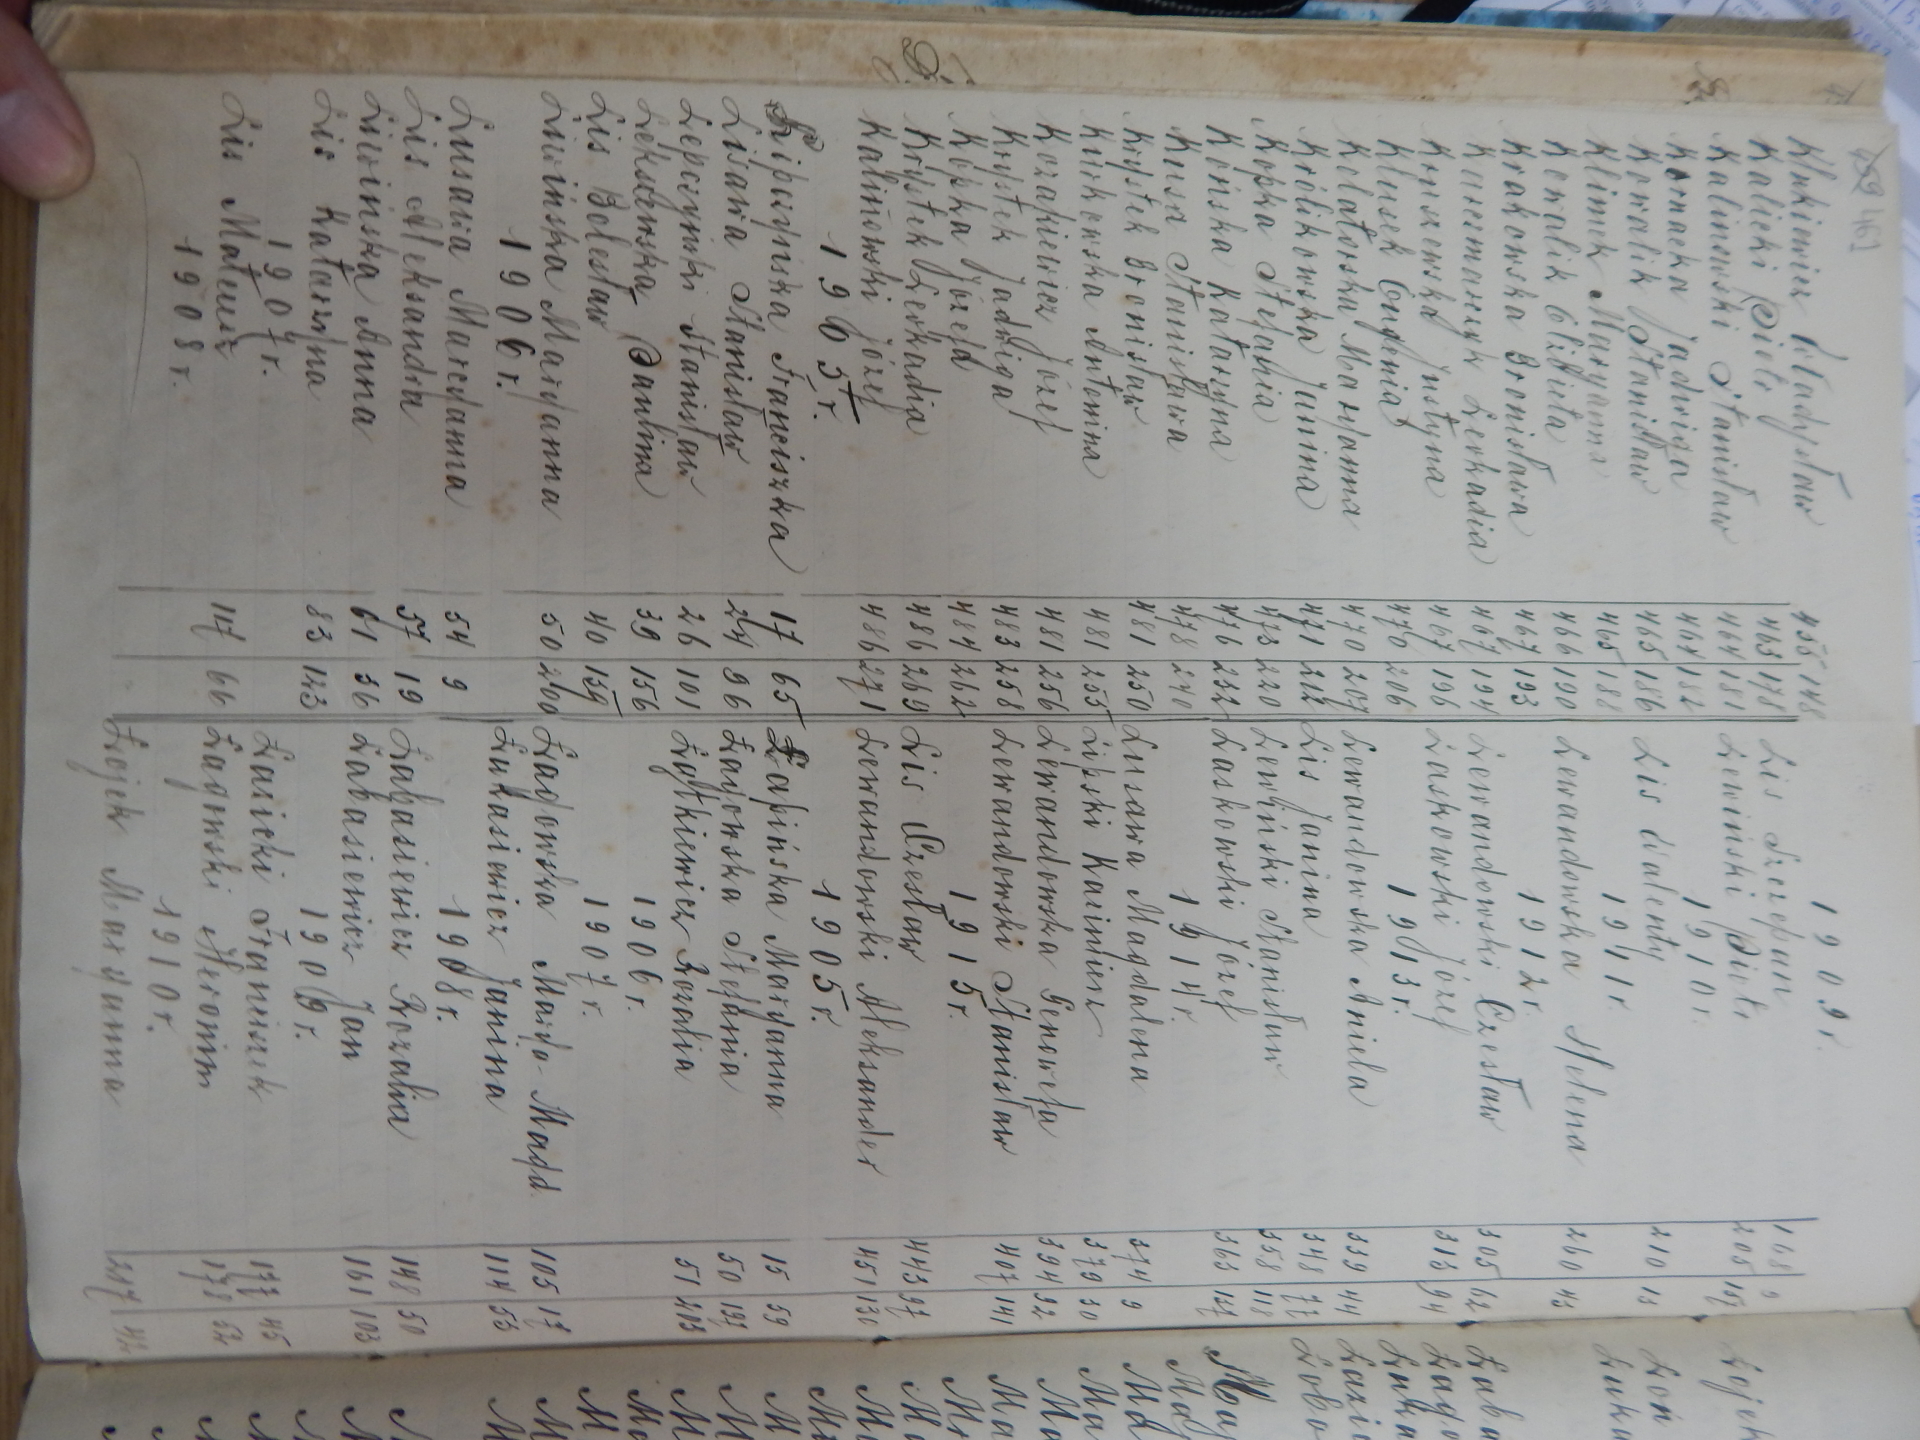 461
Klukiewicz Władysław 455 148
Kalicki Piotr 463 178
Kalinowski Stanisław 464 181
Kornacka Jadwiga 464 182
Kowalik Stanisław 465 186
Klimek Maryanna 465 188
Kowalik Elżbieta 466 190
Krakowska Bronisława 467 193
Kaczmarczyk Leokadia 467 194
Korzewska Justyna 467 196
Klusek Eugenia 470 206
Kolatorska Maryanna 470 207
Królikowska Janina 471 212
Kopka Stefania 473 220
Końska Katarzyna 476 232
Kusa Stanisława 478 240
Krystek Bronisław 481 250
Kirkowska Antonina 481 255
Kozakiewicz Józef 481 256
Krystek Jadwiga 483 258
Kopka Józefa 484 262
Krystek Leokadia 486 269
Kalinowski Józef 486 271
1905 r.
Lipczyńska Franciszka 17 65
Lisawa Stanisław 24 96
Lepczyński Stanisław 26 101
Leksańska Paulina 39 156
Lis Bolesław 40 159
Liwińska Maryanna 50 200
1906 r.
Lusawa Maryanna 54 9
Lis Aleksandra 57 19
Liwińska Anna 61 36
Lis Katarzyna 83 123
1907 r.
Lis Mateusz 117 66
1908 r.
1909 r.
Lis Szczepan 168 9
Lewiński Piotr 205 157
1910 r.
Lis Walenty 210 13
1911 r.
Lewandowska Helena 260 43
1912 r.
Lewandowski Czesław 305 62
Laskowski Józef 313 94
1913 r.
Lewandowska Aniela 339 44
Lis Janina 348 77
Lewiński Stanisław 358 118
Laskowski Józef 363 137
1914 r.
Lusawa Magdalena 374 9
Lipski Kazimierz 379 30
Lewandowska Genowefa 394 92
Lewandowski Stanisław 407 141
1915 r.
Lis Czesław 443 97
Lewandowski Aleksander 451 130
1905 r.
Łapińska Maryanna 15 59
Ładowska Stefania 50 197
Łytkiewicz Rozalia 51 203
1906 r.
1907 r.
Ładowska Marya-Magd. 105 17
Łukasiewicz Janina 114 53
1908 r.
Łabasiewicz Rozalia 148 50
Łabasiewicz Jan 161 103
1909 r.
Łasicki Franciszek 177 45
Łagowski Hieronim 178 52
1910 r.
Łojek Maryanna 217 42